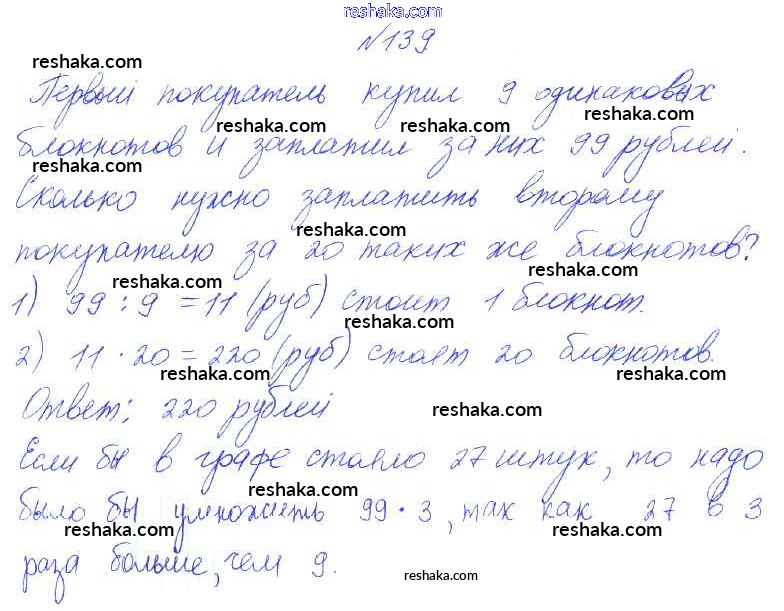 reshaka.com
№139
reshaka.com
Первый покупатель купил 9 одинаковых
reshaka.com reshaka.com reshaka.com
блокнотов и заплатил за них 99 рублей.
reshaka.com
Сколько нужно заплатить второму
reshaka.com
покупателю за 20 таких же блокнотов?
reshaka.com reshaka.com
1) 99 : 9 = 11 (руб) стоит 1 блокнот.
reshaka.com
2) 11 · 20 = 220 (руб) стоят 20 блокнотов.
reshaka.com reshaka.com
Ответ: 220 рублей
reshaka.com
Если бы в графе стояло 27 штук, то надо
reshaka.com
было бы умножить 99 · 3, так как 27 в 3
reshaka.com reshaka.com
раза больше, чем 9.
reshaka.com